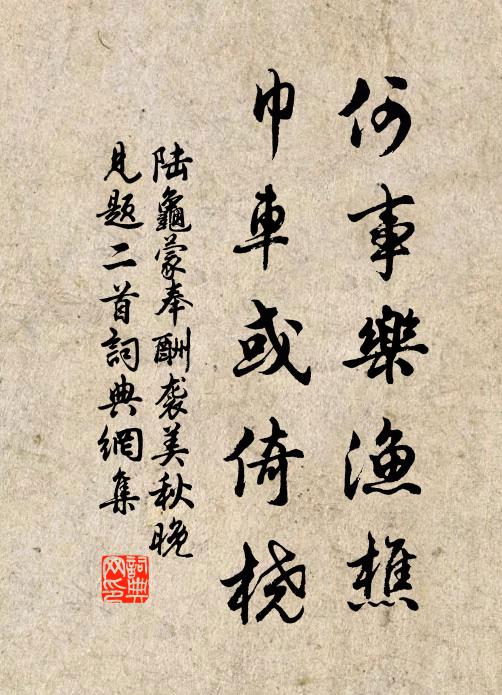 何事樂漁樵
巾車或倚橈
陆龜蒙奉酬袭美秋晚
見题二首詞典網集
詞典网印